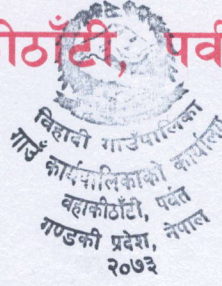 ठाँटी, पर्व
विहादी गाउँपालिका
गाउँ कार्यपालिकाको कार्यालय
वहाकीठाँटी, पर्वत
गण्डकी प्रदेश, नेपाल
२०७३